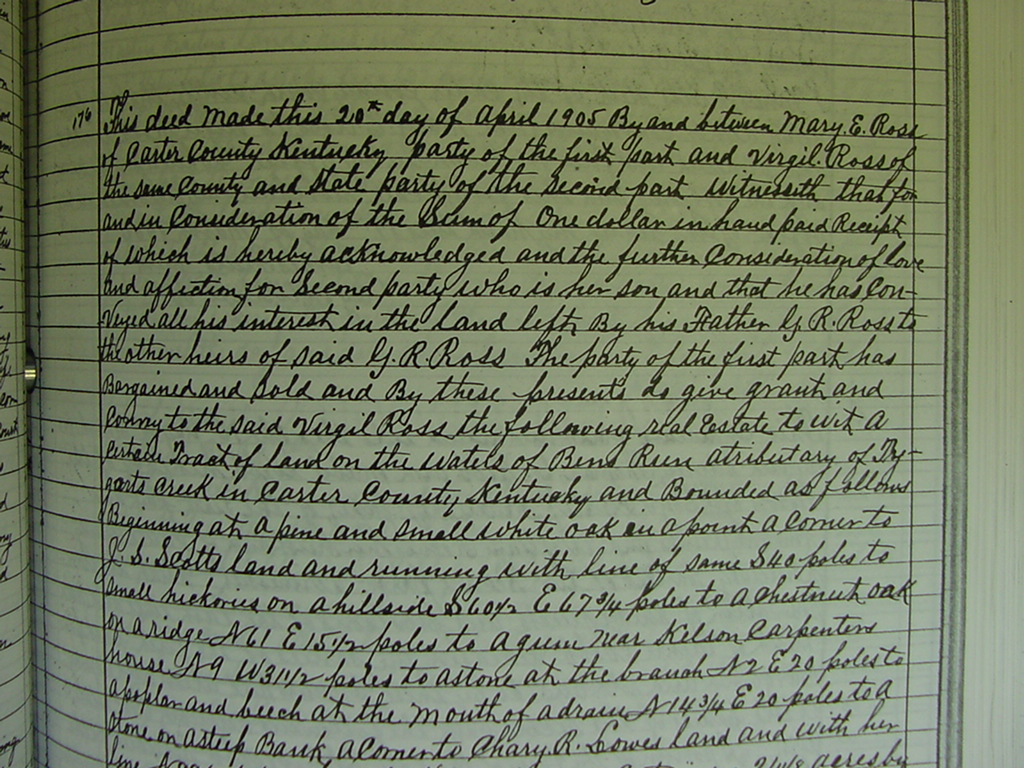 176 This deed made this 20th day of April 1905 By and between Mary E. Ross
of Carter County Kentucky party of the first part and Virgil. Ross of
the same County and State party of the second part Witnesseth that for
and in Consideration of the Sum of One dollar in hand paid Receipt
of which is hereby acknowledged and the further Consideration of love
and affection for Second party who is her son and that he has Con-
veyed all his interest in the land left By his Father G. R. Ross to
the other heirs of said G. R. Ross The party of the first part has
Bargained and Sold and By these presents do give grant and
Convey to the said Virgil Ross the following real Estate to wit A
Certain Tract of land on the waters of Bens Run a tributary of Ty-
garts Creek in Carter County Kentucky and Bounded as follows
Beginning at a pine and small white oak in a point a Corner to
J. S. Scotts land and running with line of same S 40 poles to
small hickories on a hillside S 60 1/2 E 67 3/4 poles to a Chestnut oak
on a ridge N 61 E 15 1/2 poles to a gum near Kelson Carpenters
house N 9 W 31 1/2 poles to a stone at the branch N 2 E 20 poles to
a poplar and beech at the mouth of a drain N 14 3/4 E 20 poles to a
stone on a steep Bank, a Corner to Chary R. Lowes land and with her
line acres by